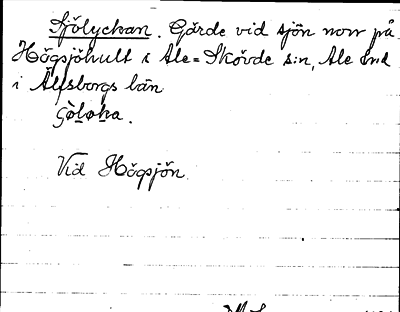 Sjölyckan. Gärde vid sjön norr på
Högsjöhult i Ale-Skövde s:n, Ale hd
i Älfsborgs län
Vid Högsjön